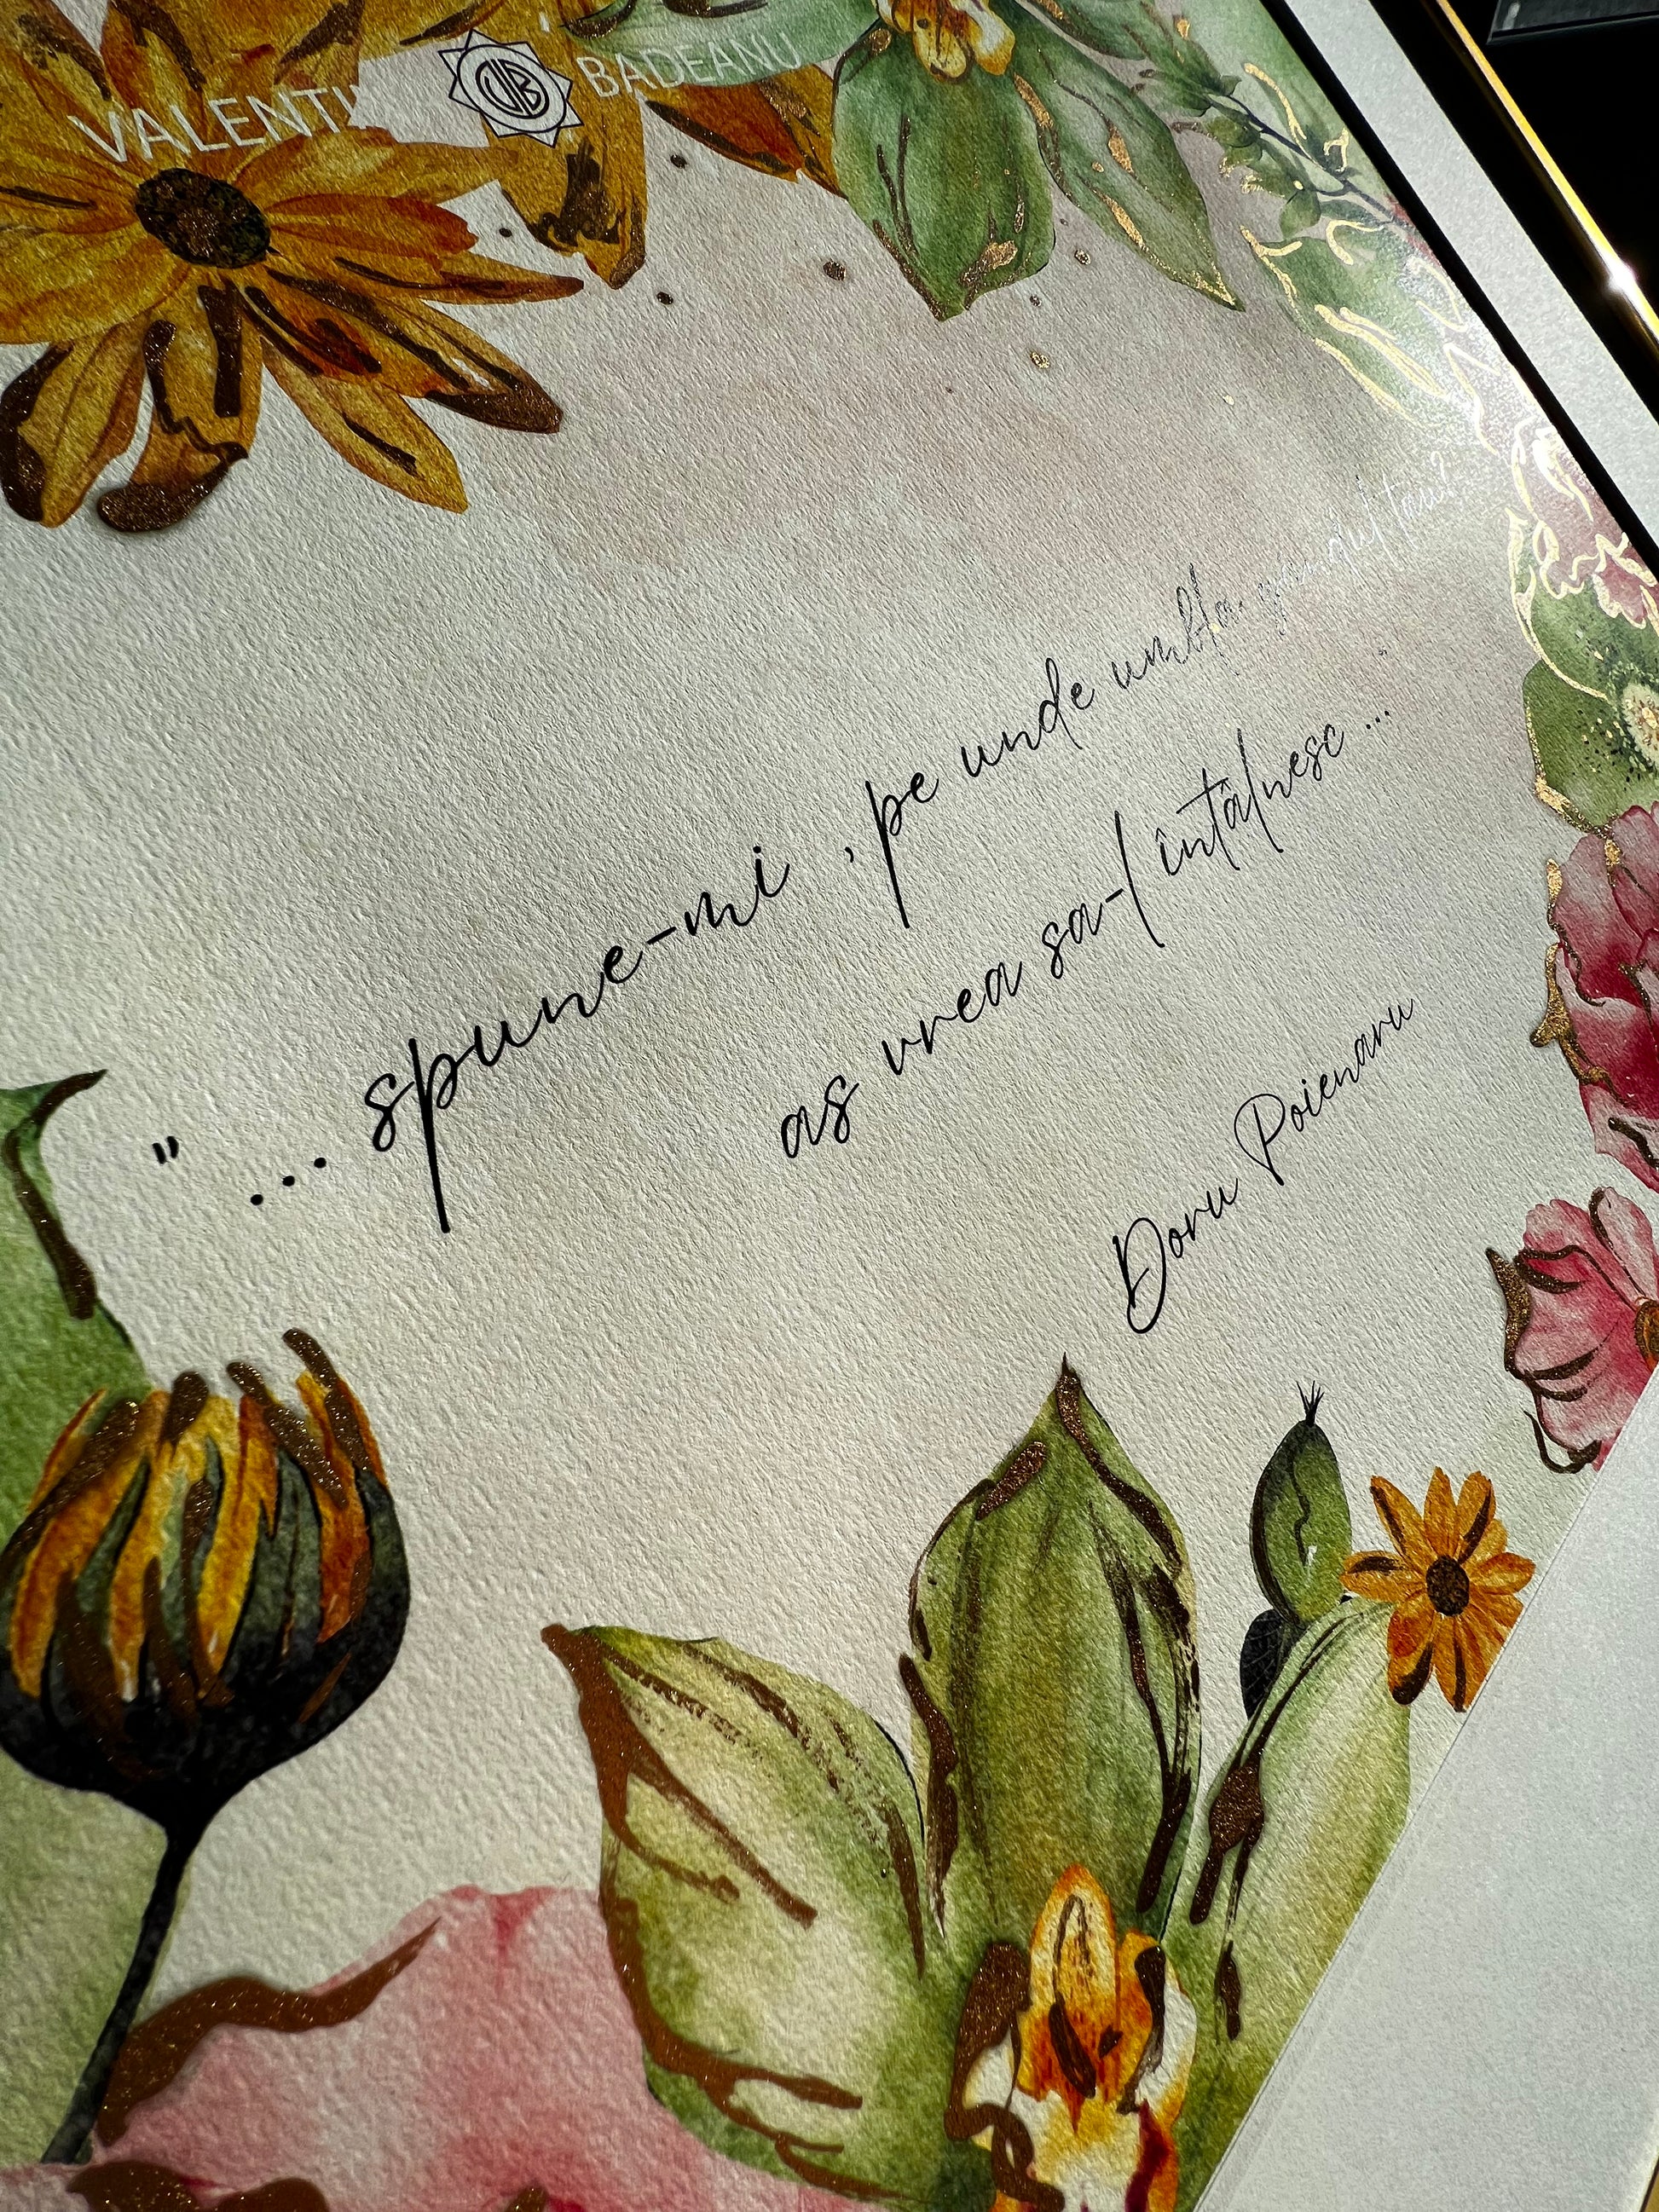 VALENTI VB BADEANU
" ... spune-mi , pe unde umbla gandul tau?
as vrea sa-l întâlnesc ... "
Doru Poienaru